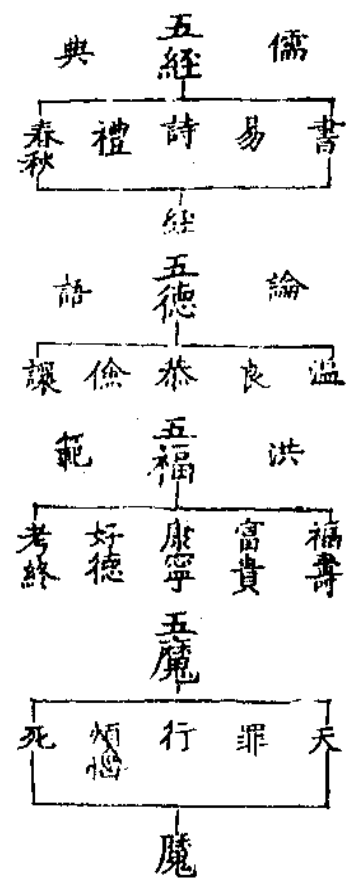 儒 五經 典
書 易 詩 禮 春秋
經
論 五德 語
溫 良 恭 儉 讓
洪 五福 範
福壽 富貴 康寧 好德 考終
五魔
天 罪 行 煩惱 死
魔